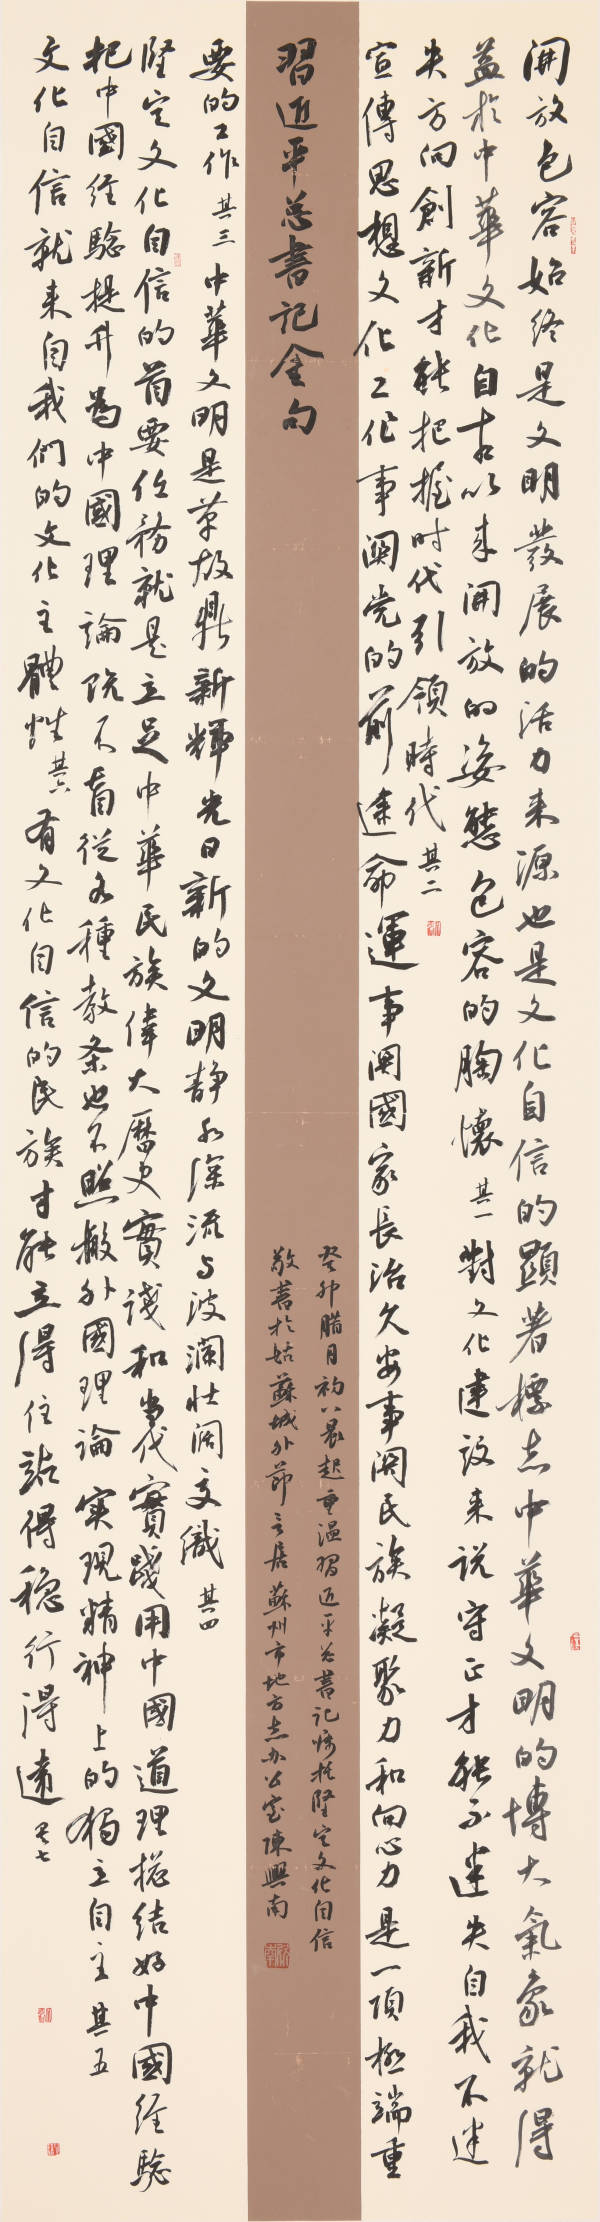 開放包容始终是文明發展的活力来源也是文化自信的顯著標志中華文明的博大氣象就得
益於中華文化自古以来開放的姿態包容的胸懷 其一 對文化建設来説守正才能不迷失自我不迷
失方向創新才能把握时代引領時代 其二
宣傳思想文化工作事関党的前途命運事関國家長治久安事関民族凝聚力和向心力是一項極端重
習近平总書記金句
癸卯腊月初八晨起重温習近平总書記堅定文化自信
敬書於姑蘇城外節言居蘇州市地方志办公室陳興南
要的工作 其三 中華文明是革故鼎新輝光日新的文明静水深流与波瀾壮阔交織 其四
堅定文化自信的首要任務就是立足中華民族偉大歷史實踐和当代實踐用中國道理揔结好中國经驗
把中國经驗提升為中國理論既不盲從各種教条也不照搬外國理論实現精神上的獨立自主 其五
文化自信就来自我們的文化主體性 其六 有文化自信的民族才能立得住站得稳行得遠 其七